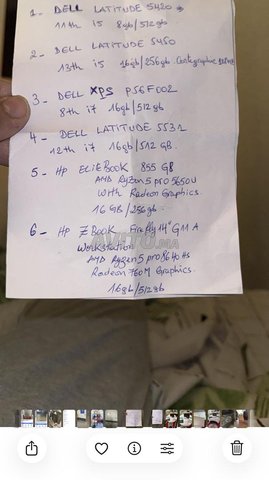 1- DELL LATITUDE 5420
11th i5 8gb/512gb
2- DELL LATITUDE 5450
13th i5 16gb/256gb
3- DELL XPS P56F002
8th i7 16gb/512gb
4- DELL LATITUDE 5531
12th i7 16gb/512 GB.
5- HP ELiTEBOOK 855 G8
AMD RyZen 5 pro 5650U
With Radeon Graphics.
16 GB/256gb
6- HP ZBOOK Firefly 14" G11 A
WorkStation
AMD Ryzen 5 pro 8640 HS
Radeon 760M Graphics.
16gb/512gb
AVITO.MA